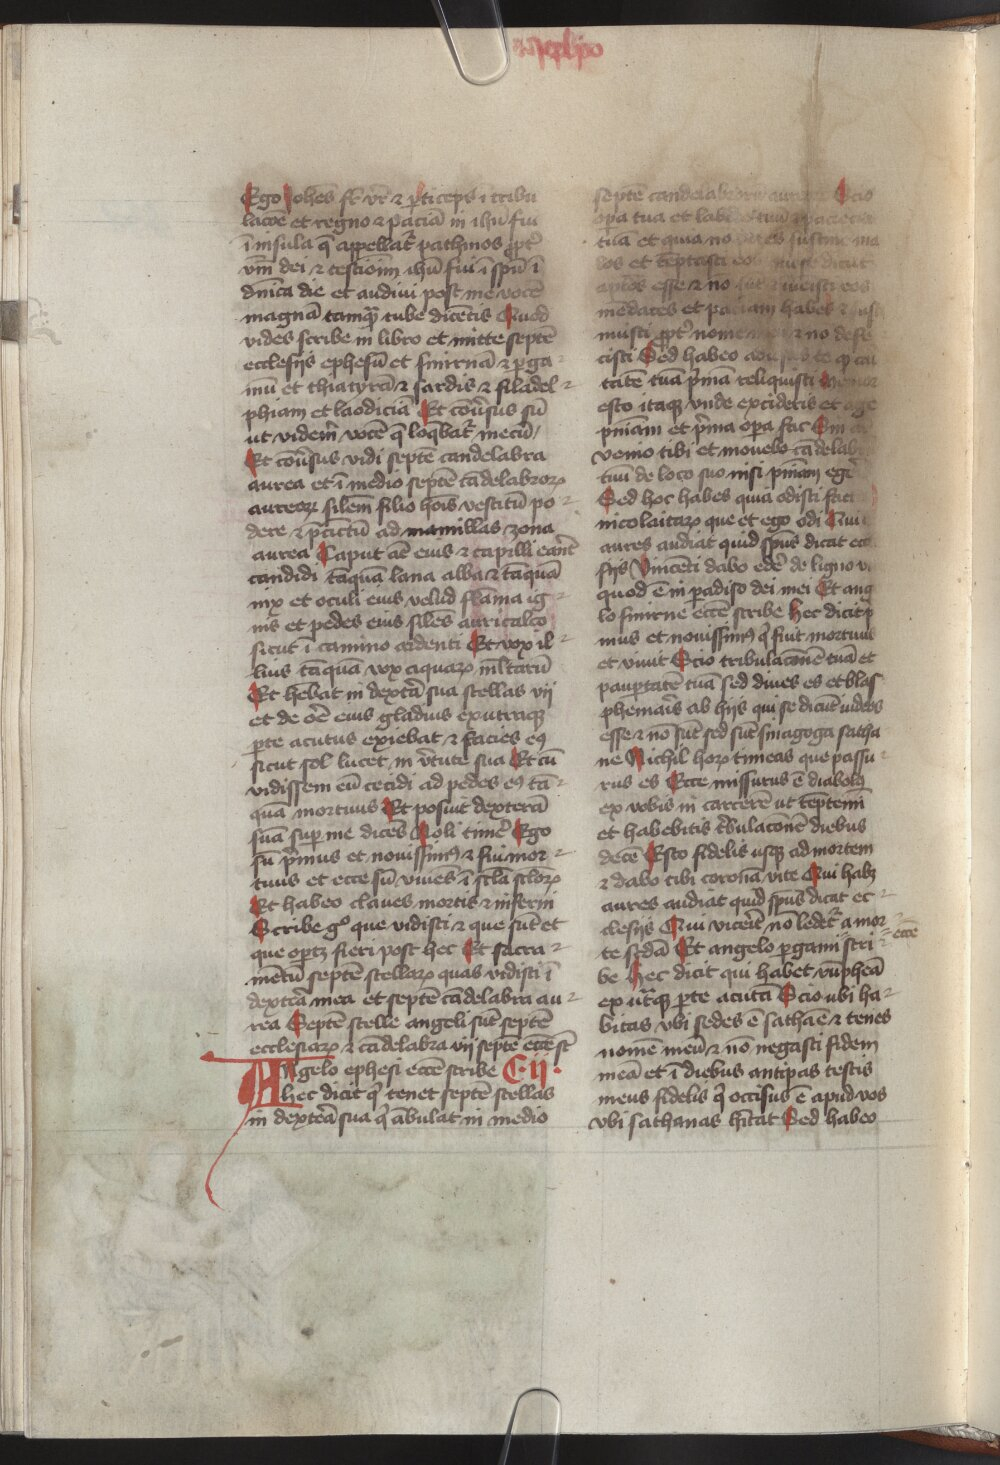 Ego Johēs fr̄ vr̄ ⁊ pticeps ī tribu
lacōe et regno ⁊ paciā in ihū fui
ī insula q̄ appellat᷑ pathmos ꝓpt᷑
v̄m dei ⁊ testioīm ihū fui ī spū ī
dn̄ica die et audiui post me vocē
magnā tamqͣꝫ tube dicētis Quod
vides scribe in libro et mitte septē
ecclesijs ephesū et smirnā ⁊ ꝑga
mū et thiatyrā ⁊ sardis ⁊ filadel
phiam et laodiciā Et cōu᷑sus sū
ut videm᷑ vocē q̄ loqͣbat᷑ mecū
Et cōu᷑sus vidi septē candelabra
aurea et ī medio septē cādelabroꝝ
aureoꝝ silem̄ filio hoīs vestitū po
dere et p̄cīctū ad mamillas zona
aurea Caput at̄ eius ⁊ capilli erāt
candidi tāquā lana alba ⁊ tāquā
nix et oculi eius velud flāma ig
nis et pedes eius siles̄ auricalco
sicut ī camino ardenti Et vox il
lius tāquā vox aquaꝝ ml̄tarū
Et hēbat in dext᷑a sua stellas vij
et de oē eius gladius ex utraqꝫ
ꝑte acutus exiebat ⁊ facies eꝰ
sicut sol lucet in v᷑tute sua Et cū
vidissem eū cecidi ad pedes eꝰ tā
quā mortuus Et posuit dexterā
suā suꝑ me dicēs Noli tim᷑e Ego
sū p̄mus et nouissimꝰ ⁊ fui mor
tuus et ecce sū viuēs ī scl̄a scl̄oꝝ
Et habeo claues mortis ⁊ inferni
Scribe gͦ que vidisti ⁊ que sūt et
que optꝫ fieri post hec Et sacra
mētū septē stellaꝝ quas vidisti ī
dext᷑a mea et septē cādelabra au
rea Septē stelle angeli sūt septē
ecclesiaꝝ ⁊ cādelabra vij septē ecc̄e st̄
Angelo ephesi ecc̄e scribe C ij
hec dicit qͥ tenet septē stellas
in dext᷑a sua qͥ ābulat in medio
septē candelabroru aureoru Scio
opa tua et labo tuū
tuā et quia no es sustine ma
los et tēptasti eos dicūt
aptōs esse ⁊ nō īueisti eos
mēdaces et paciam habes ⁊ sust
inuisti ꝓpt᷑ nomē ⁊ nō defe
cisti Sed habeo te qꝫ ca
ritatē tuā p̄mā reliquisti
esto itaqꝫ vnde excideris et age
pn̄iam et p̄ma opa fac
venio tibi et mouebo cādelab
tuū de loco suo nisi pn̄iam eg᷑e
Sed hoc habes quia odisti fact
nicolaitaꝝ que et ego odi Qui
aures audiat quid spūs dicat ecc
sijs Vincēti dabo ed᷑e de ligno vi
quod ē in padiso dei mei Et ang
lo smirne ecc̄e scribe Hec dicit p
mus et nouissimꝰ qͥ fuit mortuus
et viuit Scio tribulacōnē tuā et
pauꝑtatē tuā sed diues es et blas
phemaris ab hijs qui se dicūt iudeos
esse ⁊ nō sūt sed sūt sinagoga satha
ne Nichil hoꝝ timeas que passu
rus es Ecce missurus ē diabolꝰ
ex vobis in carcerē ut tēptemī
et habebitis t᷑bulacōnē diebus
decē Esto fidelis usqꝫ ad mortem
⁊ dabo tibi coronā vite Qui habꝫ
aures audiat quid spūs dicat ec
clesijs Qui vicerit nō ledet᷑ a mor
te sc̄dā Et angelo ꝑgami scri
ecc̄e
be Hec dicit qui habet rūpheā
ex ut᷑qꝫ ꝑte acutā Scio ubi ha
bitas vbi sedes ē sathaē ⁊ tenes
nomē meū ⁊ nō negasti fidem
meā et ī diebus antipas testis
meus fidelis qͥ occisus ē apud vos
vbi sathanas hītat Sed habeo